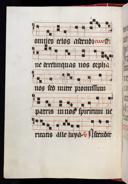 omnes celos ascendisti
ne derelinquas nos orpha
nos sed mitte promissum
patris in nos spiritum ve
ritatis alleluya